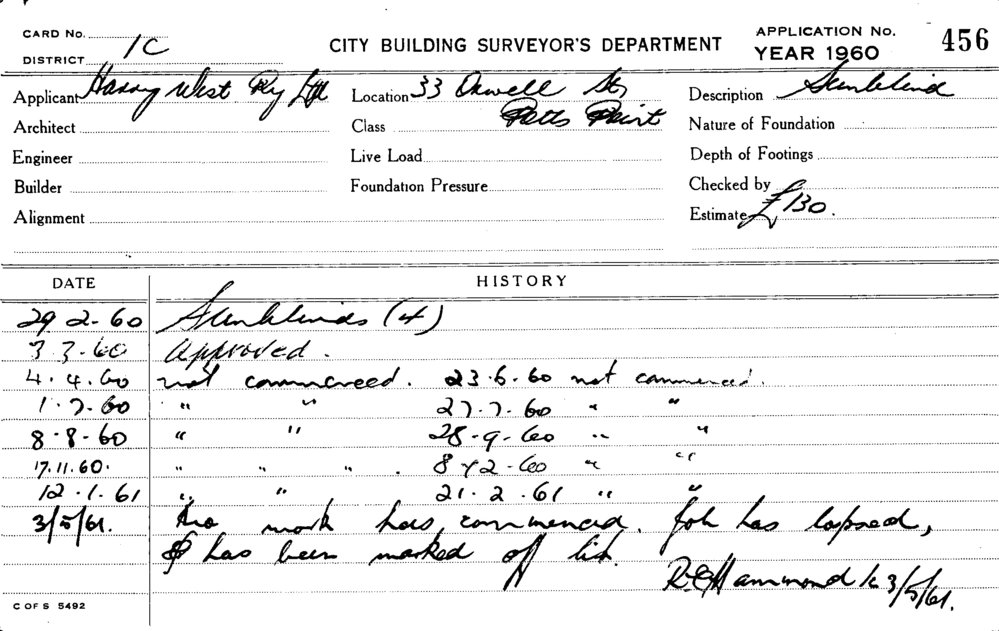 CARD No.
DISTRICT 1C
CITY BUILDING SURVEYOR'S DEPARTMENT
APPLICATION No. 456
YEAR 1960
Applicant Harry West Pty Ltd
Location 33 Orwell St,
Potts Point
Description Sunblind
Architect
Class
Nature of Foundation
Engineer
Live Load
Depth of Footings
Builder
Foundation Pressure
Checked by
Alignment
Estimate £130.
DATE HISTORY
29 2-60 Sunblinds (4)
3.3.60 Approved.
4.4.60 not commenced. 23.6.60 not commenced.
1.7.60 " " 27.7.60 " "
8.8-60 " " 28-9-60 " "
17.11.60. " " " . 8 12-60 " "
12.1.61 " " 21.2.61 " "
3/5/61. No work has commenced. Job has lapsed,
& has been marked off list.
R.G. Hammond 3/5/61.
C OF S 5492